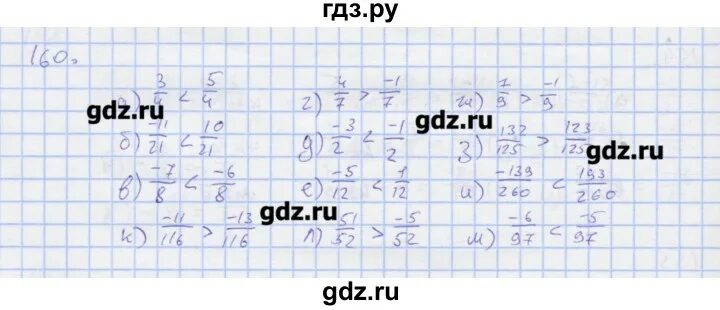 гдз.ру
160.
а) 3/4 < 5/4 г) 4/7 > -1/7 ж) 7/9 > -1/9
gdz.ru gdz.ru
б) -11/21 < 10/21 д) -3/2 < -1/2 з) 132/125 > 123/125
gdz.ru
в) -7/8 < -6/8 е) -5/12 < 1/12 и) -139/260 < 193/260
gdz.ru
к) -11/116 > -13/116 л) 51/52 > -5/52 м) -6/97 < -5/97
gdz.ru gdz.ru
gdz.ru